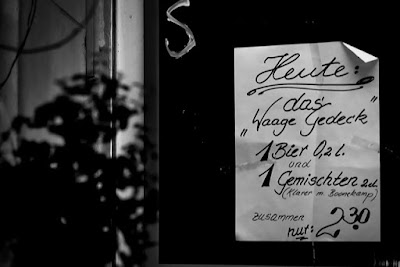 S
Heute:
das
„Waage Gedeck"
1 Bier 0,2 l.
und
1 Gemischten 2cl.
(Klarer m. Boonekamp)
zusammen
nur: 2.30